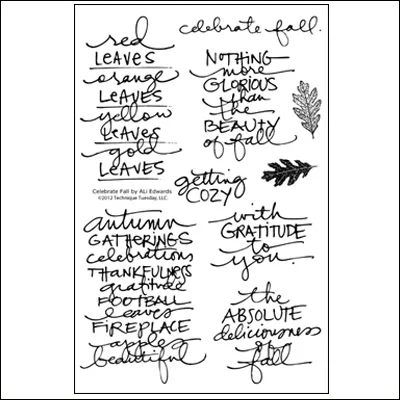 red
LEAVES
orange
LEAVES
yellow
LEAVES
gold
LEAVES
Celebrate Fall by ALi Edwards
©2012 Technique Tuesday, LLC.
celebrate fall.
NOTHING
more
GLORIOUS
than
the
BEAUTY
of fall
getting
COZY
autumn
GATHERINGS
celebrations
THANKFULNESS
gratitude
FOOTBALL
leaves
FIREPLACE
apples
beautiful
with
GRATITUDE
to
you.
the
ABSOLUTE
deliciousness
of
fall